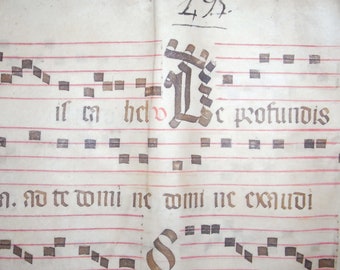 is ra hel De profundis
a. ad te domi ne domi ne exaudi
S